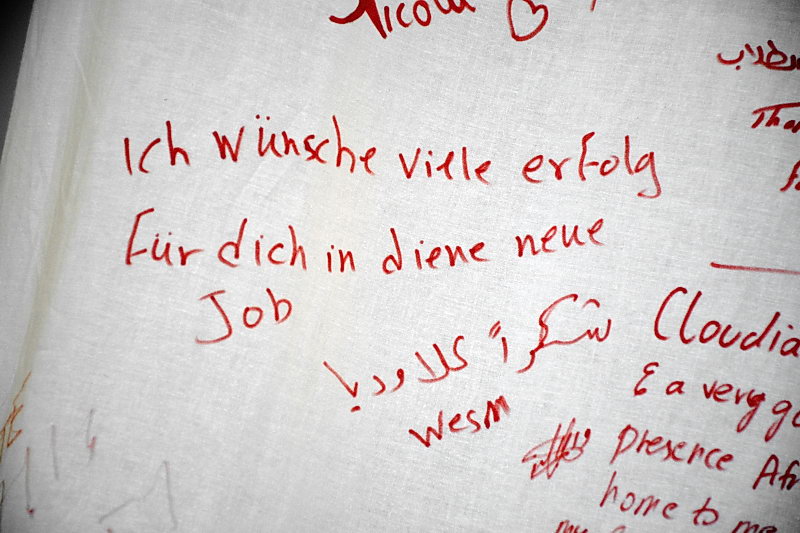 Nicola
Ich wünsche vielle erfolg
Für dich in diene neue
Job
شكراً كلاوديا
Wesm
Claudia
& a very
presence
home to me